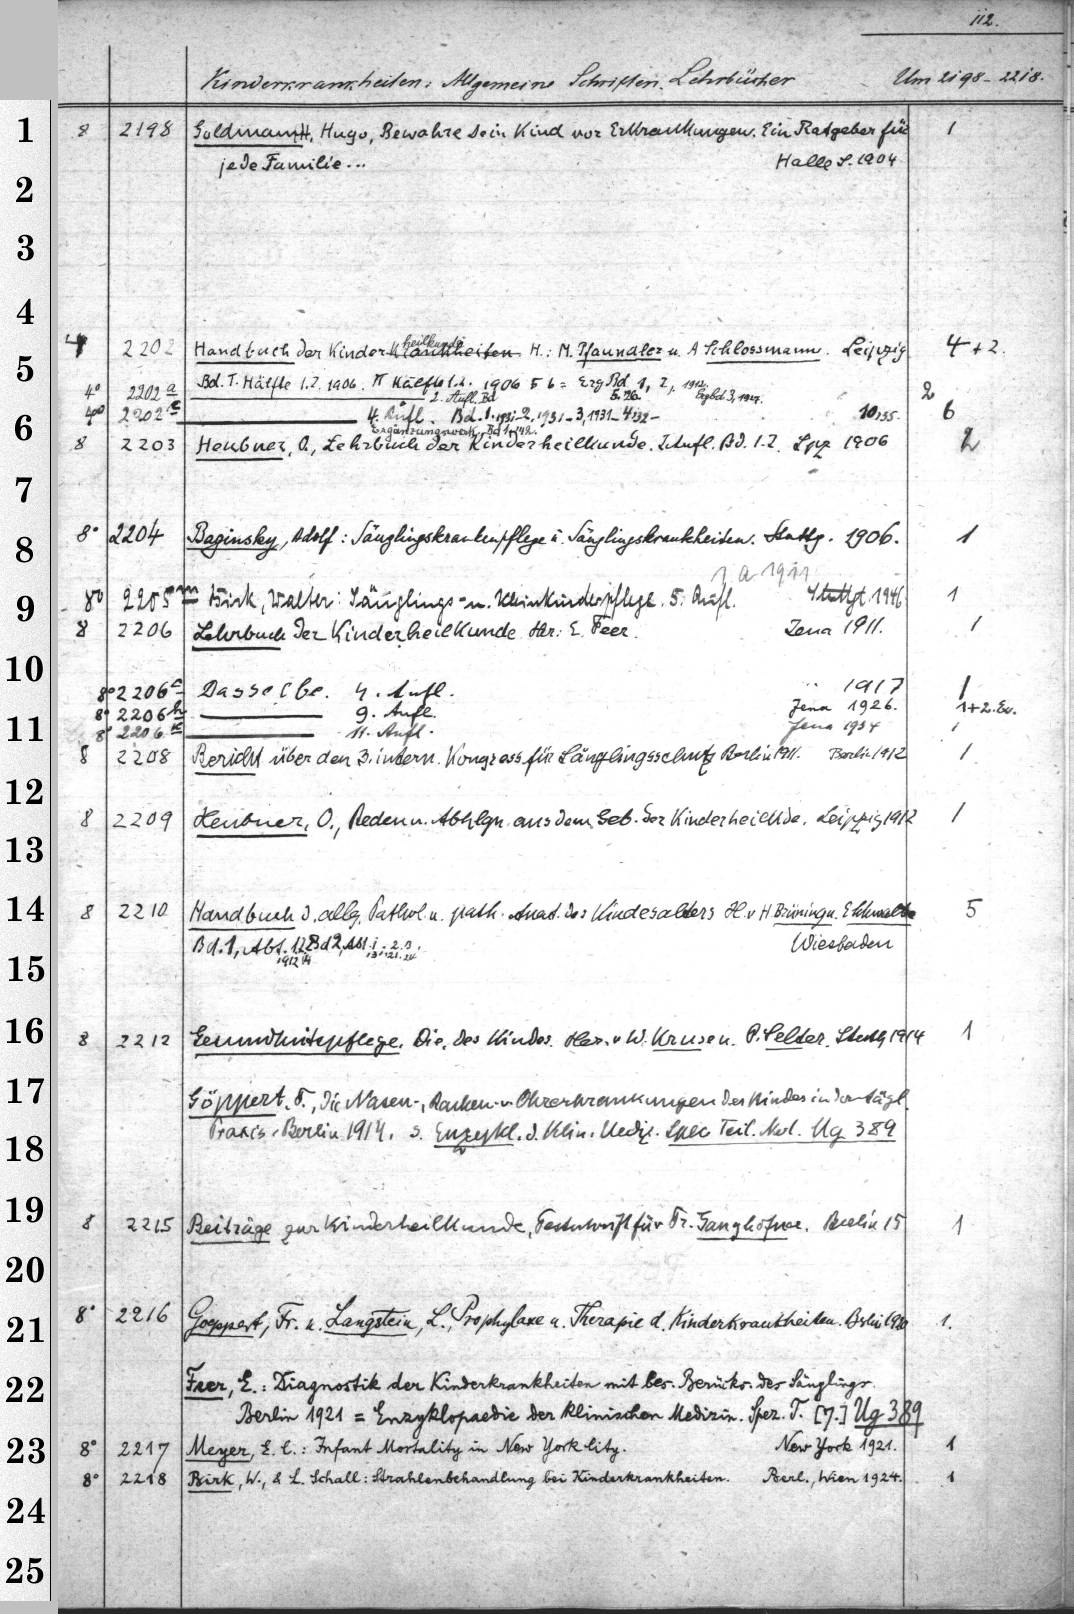 112.
Kinderkrankheiten: Allgemeine Schriften. Lehrbücher Um 2198-2218.
1 8 2198 Goldmann, Hugo, Bewahre Dein Kind vor Erkrankungen. Ein Ratgeber für 1
jede Familie... Halle S. 1904
2
3
4
4 2202 Handbuch der Kinderkrankheiten heilkunde H.: M. Pfaundler u. A Schlossmann. Leipzig 4+2.
5
4° 2202a Bd. I. Hälfte 1.2. 1906. II Hälfte 1.2. 1906 5 6 = Erg Bd 1, 2, Ergbd 3, 1927. 2
2. Aufl. Bd
4° 2202 4. Aufl. Bd. 1. 1931-2. 1931-3, 1931-4 1932- 10, 35. 6
6 Ergänzungswerk, Bd 1, 1942.
8 2203 Heubner, O., Lehrbuch der Kinderheilkunde. Aufl. Bd. 1.2. Lpz 1906 2
7
8° 2204 Baginsky, Adolf: Säuglingskrankenpflege u. Säuglingskrankheiten. Stuttg. 1906. 1
8
1 a 1911
9 8° 2205m Birk, Walter: Säuglings- u. Kleinkinderpflege. 5. Aufl. Stuttgt. 1946 1
8 2206 Lehrbuch der Kinderheilkunde Hr: E. Feer. Jena 1911. 1
10
8° 2206c Dasselbe. 4. Aufl. " 1917 1
8° 2206h 9. Aufl. Jena 1926. 1+2.Ex.
11 8° 2206k 11. Aufl. Jena 1934 1
8 2208 Bericht über den 3. intern. Kongress für Säuglingsschutz Berlin 1911. Berlin 1912 1
12
8 2209 Heubner, O., Reden u. Abhlgn. aus dem Geb. der Kinderheilkde. Leipzig 1912 1
13
14 8 2210 Handbuch d. allg. Pathol. u. path. Anat. des Kindesalters H. v H. Brüning u. E Schwalbe 5
Bd. 1, Abt. 1.2 Bd 2, Abt 1. 2. 3. Wiesbaden
1912 14 13. 21. 24
15
16 8 2212 Gesundheitspflege, Die, des Kindes. Her. v W. Kruse u. P. Selter. Stuttg 1914 1
17 Göppert, F., Die Nasen-, Rachen- u. Ohrerkrankungen des Kindes in der tägl.
Praxis. Berlin 1914. s. Enzykl. d. Klin. Mediz. Spec Teil. Ug 389
18
19 8 2215 Beiträge zur Kinderheilkunde, Festschrift für Fr. Ganghofner. Berlin 15 1
20
8° 2216 Goeppert, Fr. u. Langstein, L., Prophylaxe u. Therapie d. Kinderkrankheiten. Berlin 1920 1.
21
22 Feer, E.: Diagnostik der Kinderkrankheiten mit bes. Berücks. des Säuglings.
Berlin 1921 = Enzyklopaedie der klinischen Medizin. Spez. T. [7.] Ug 389
23 8° 2217 Meyer, E. C.: Infant Mortality in New York City. New York 1921. 1
8° 2218 Birk, W., & L. Schall: Strahlenbehandlung bei Kinderkrankheiten. Berl., Wien 1924. 1
24
25